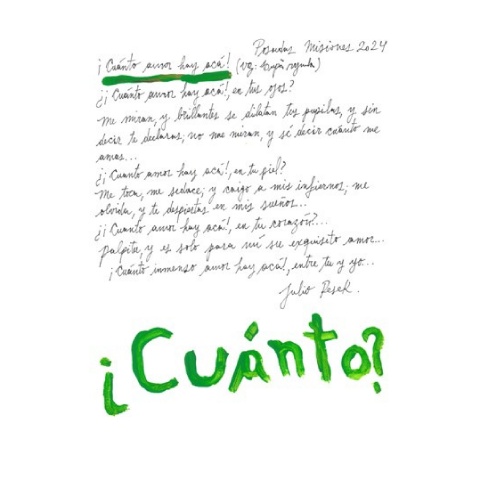 Posadas Misiones 2024
¡Cuánto amor hay acá!
¿¡Cuánto amor hay acá!, en tus ojos?
Me miran, y brillantes se dilatan tus pupilas, y sin
decir te declaras; no me miran, y sé decir cuánto me
amas...
¿¡Cuánto amor hay acá!, en tu piel?
Me toca, me seduce; y caigo a mis infiernos; me
olvida, y te despiertas en mis sueños...
¿¡Cuánto amor hay acá!, en tu corazón?...
palpita, y es solo para mí su exquisito amor...
¡Cuánto inmenso amor hay acá!, entre tu y yo...
Julio Pesek.
¡Cuánto?